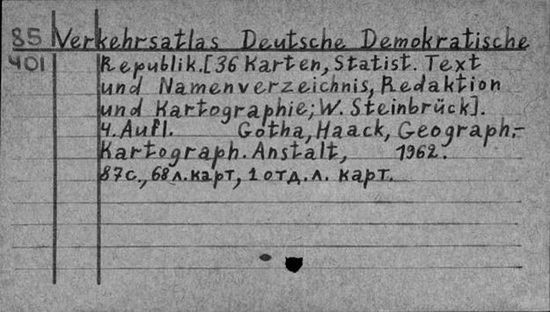 85 Verkehrsatlas Deutsche Demokratische
401 Republik.[36 Karten, Statist. Text
und Namenverzeichnis, Redaktion
und Kartographie; W. Steinbrück].
4. Aufl. Gotha, Haack, Geograph.-
Kartograph. Anstalt, 1962.
87с., 68 л. карт, 1 отд. л. карт.